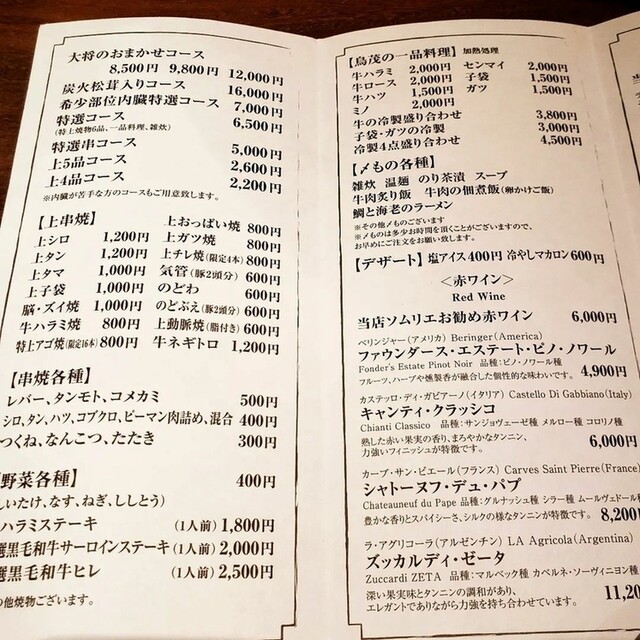 大将のおまかせコース
8,500円 9,800円 12,000円
炭火松茸入りコース 16,000円
希少部位内臓特選コース 7,000円
特選コース 6,500円
(特上焼物6品、一品料理、雑炊)
特選串コース 5,000円
上5品コース 2,600円
上4品コース 2,200円
※内臓が苦手な方のコースもご用意致します。
【上串焼】
上シロ 1,200円
上タン 1,200円
上タマ 1,000円
上子袋 1,000円
脳・ズイ焼 1,000円
牛ハラミ焼 800円
特上アゴ焼(限定16本) 800円
上おっぱい焼 800円
上ガツ焼 800円
上チレ焼(限定4本) 800円
気管(豚2頭分) 600円
のどわ 600円
のどぶえ(豚2頭分) 600円
上動脈焼(脂付き) 600円
牛ネギトロ 1,200円
【串焼各種】
レバー、タンモト、コメカミ 500円
シロ、タン、ハツ、コブクロ、ピーマン肉詰め、混合 400円
つくね、なんこつ、たたき 300円
野菜各種】 400円
しいたけ、なす、ねぎ、ししとう)
ハラミステーキ (1人前) 1,800円
選黒毛和牛サーロインステーキ (1人前) 2,000円
選黒毛和牛ヒレ (1人前) 2,500円
の他焼物ございます。
【鳥茂の一品料理】 加熱処理
牛ハラミ 2,000円 センマイ 2,000円
牛ロース 2,000円 子袋 1,500円
牛ハツ 1,500円 ガツ 1,500円
ミノ 2,000円
牛の冷製盛り合わせ 3,800円
子袋・ガツの冷製 3,000円
冷製4点盛り合わせ 4,500円
【〆もの各種】
雑炊 温麺 のり茶漬 スープ
牛肉炙り飯 牛肉の佃煮飯(卵かけご飯)
鯛と海老のラーメン
※その他〆ものございます
※〆ものは多少お時間を頂くことがございますので、
お早めにご注文をお願い致します。
【デザート】 塩アイス400円 冷やしマカロン600円
<赤ワイン>
Red Wine
当店ソムリエお勧め赤ワイン 6,000円
ベリンジャー(アメリカ) Beringer(America)
ファウンダース・エステート・ピノ・ノワール
Fonder's Estate Pinot Noir 品種:ピノ・ノワール種
フルーツ、ハーブや燻製香が融合した個性的な味わいです。 4,900円
カステッロ・ディ・ガビアーノ(イタリア) Castello Di Gabbiano(Italy)
キャンティ・クラッシコ
Chianti Classico 品種:サンジョヴェーゼ種 メルロー種 コロリノ種
熟した赤い果実の香り、まろやかなタンニン、
力強いフィニッシュが特徴です。 6,000円
カーブ・サン・ピエール(フランス) Carves Saint Pierre(France)
シャトーヌフ・デュ・パプ
Chateauneuf du Pape 品種:グルナッシュ種 シラー種 ムールヴェドール種
豊かな香りとスパイシーさ、シルクの様なタンニンが特徴です。 8,200円
ラ・アグリコーラ(アルゼンチン) LA Agricola(Argentina)
ズッカルディ・ゼータ
Zuccardi ZETA 品種:マルベック種 カベルネ・ソーヴィニヨン種
深い果実味とタンニンの調和があり、
エレガントでありながら力強を持ち合わせています。 11,20
当店